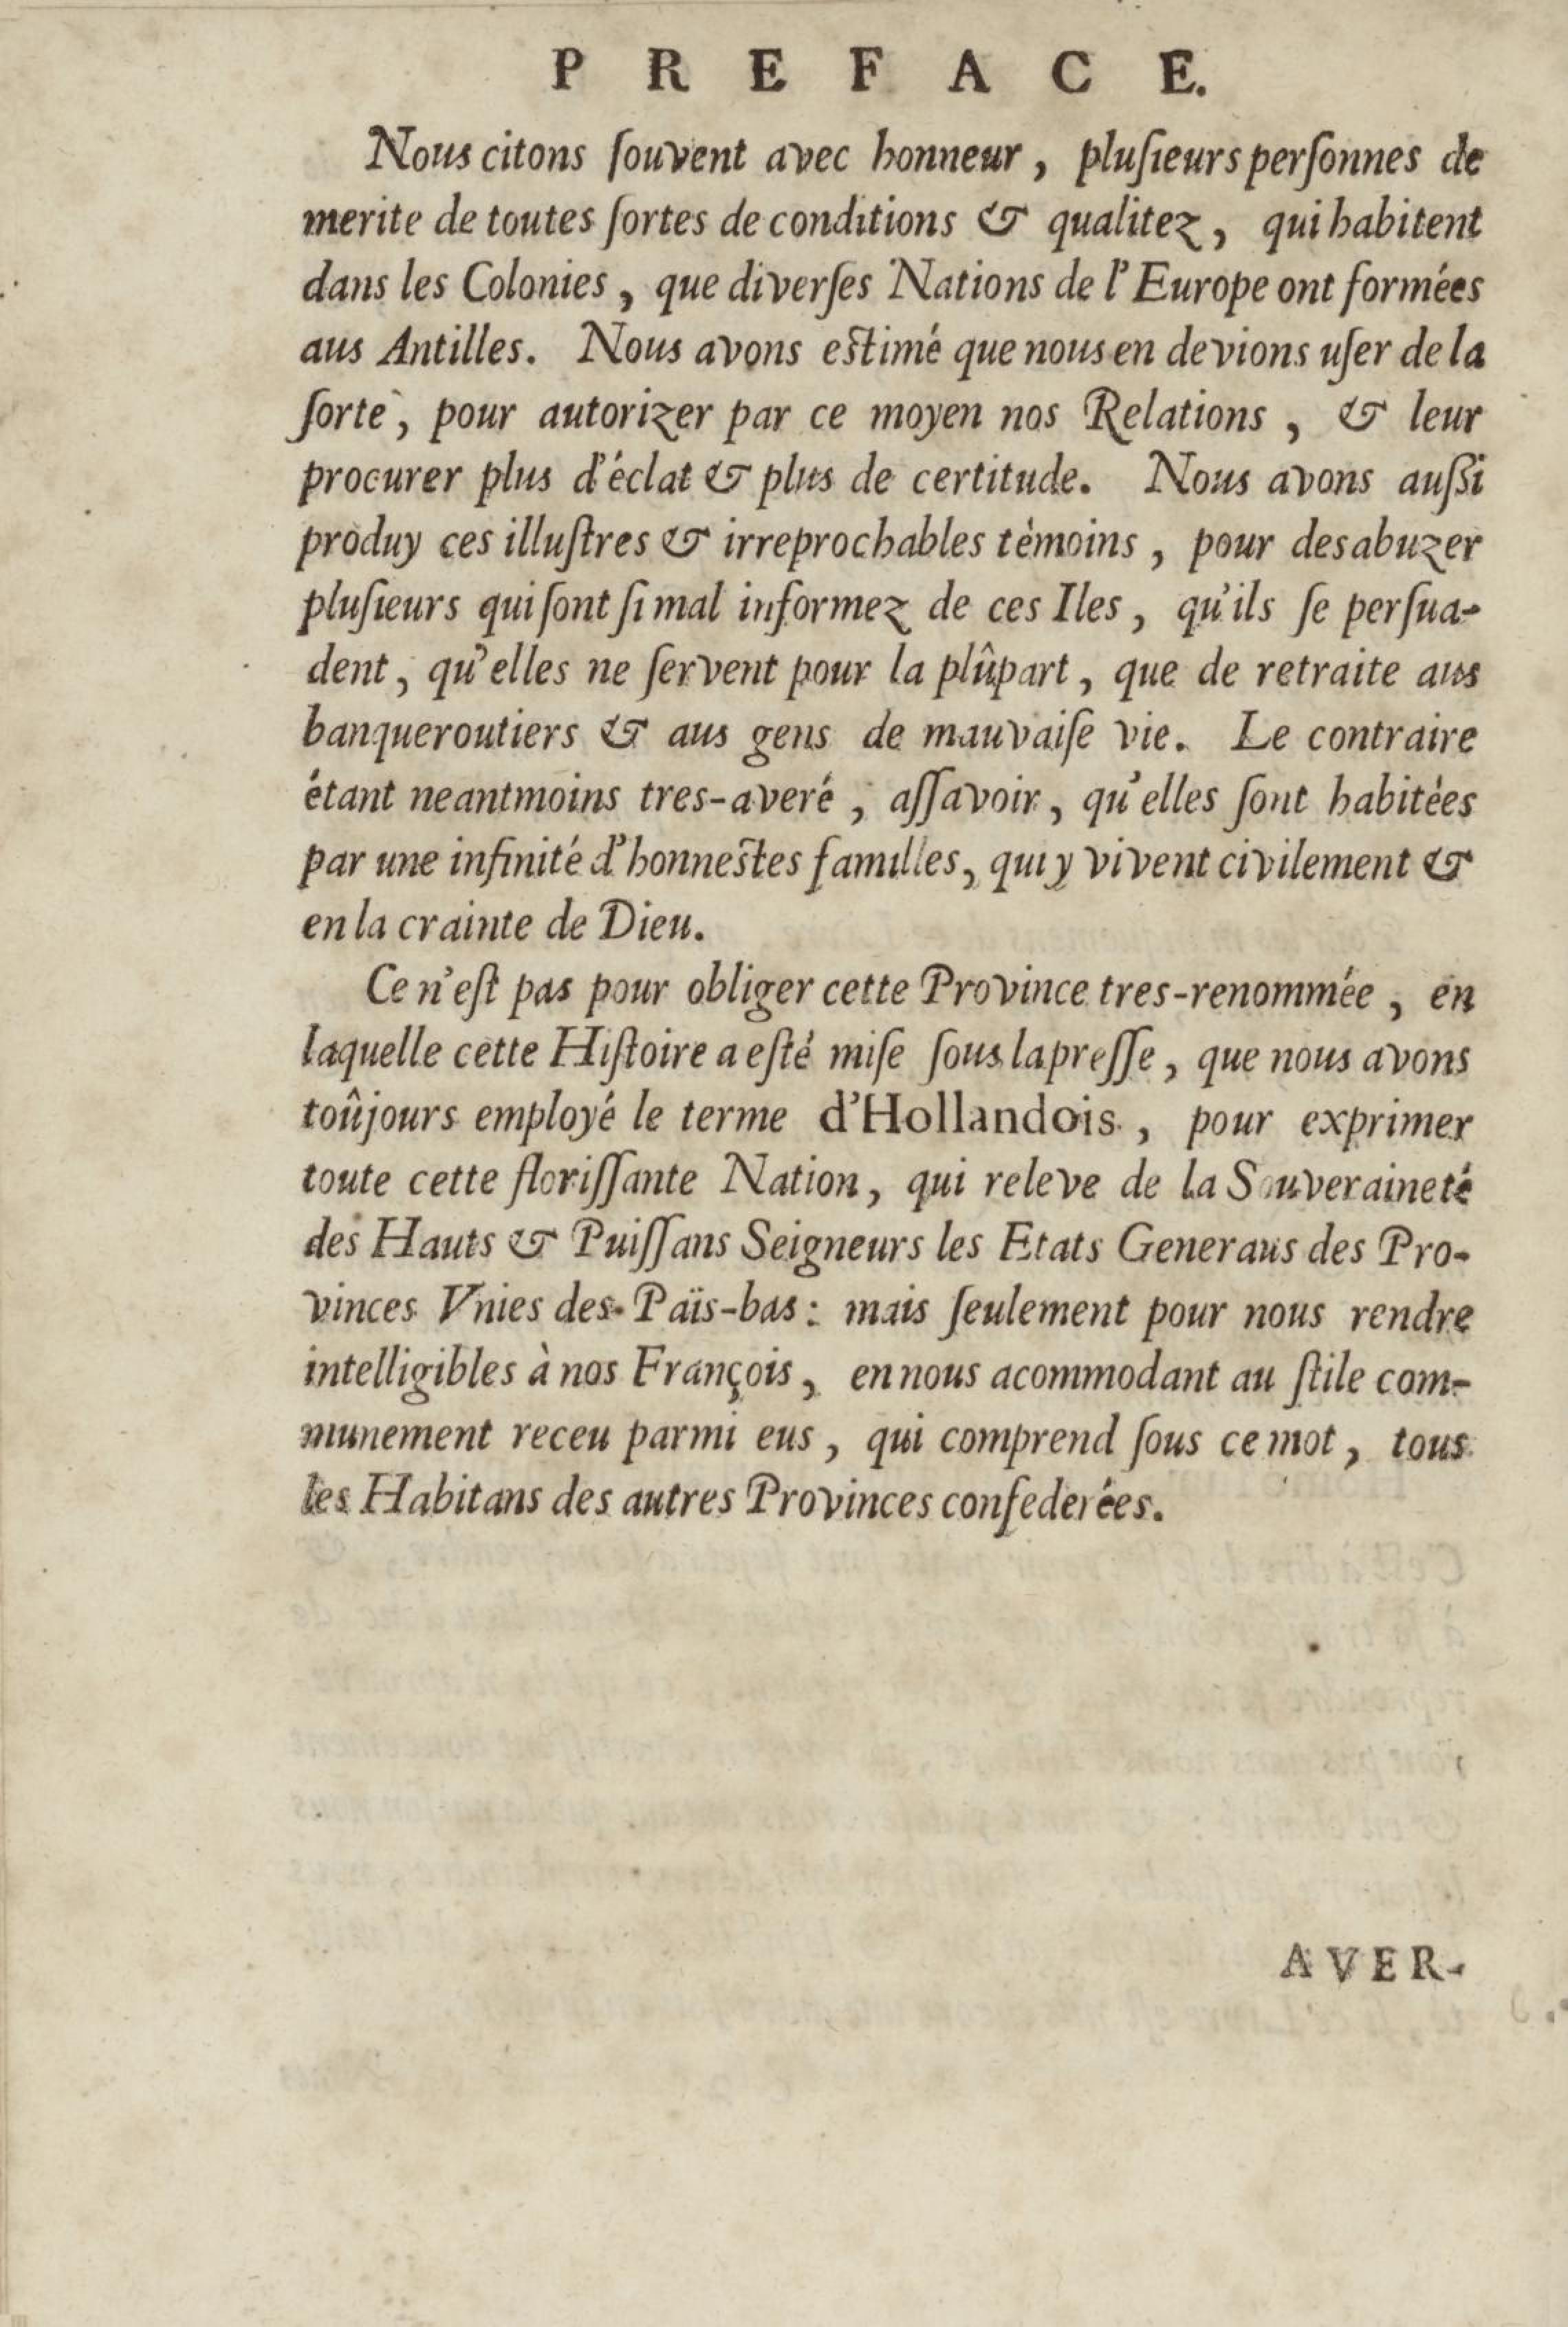 PREFACE.
Nous citons ſouvent avec honneur, pluſieurs perſonnes de
merite de toutes ſortes de conditions & qualitez, qui habitent
dans les Colonies, que diverſes Nations de l'Europe ont formées
aus Antilles. Nous avons eſtimé que nous en devions uſer de la
ſorte, pour autorizer par ce moyen nos Relations, & leur
procurer plus d'éclat & plus de certitude. Nous avons auſſi
produy ces illuſtres & irreprochables tèmoins, pour desabuzer
pluſieurs qui ſont ſi mal informez de ces Iles, qu'ils ſe perſua-
dent, qu'elles ne ſervent pour la plûpart, que de retraite aus
banqueroutiers & aus gens de mauvaiſe vie. Le contraire
étant neantmoins tres-averé, aſſavoir, qu'elles ſont habitées
par une infinité d'honneſtes familles, qui y vivent civilement &
en la crainte de Dieu.
Ce n'eſt pas pour obliger cette Province tres-renommée, en
laquelle cette Hiſtoire a eſté miſe ſous la preſſe, que nous avons
toûjours employé le terme d'Hollandois, pour exprimer
toute cette floriſſante Nation, qui releve de la Souveraineté
des Hauts & Puiſſans Seigneurs les Etats Generaus des Pro-
vinces Vnies des Païs-bas: mais ſeulement pour nous rendre
intelligibles à nos François, en nous acommodant au ſtile com-
munement receu parmi eus, qui comprend ſous ce mot, tous
les Habitans des autres Provinces confederées.
AVER-